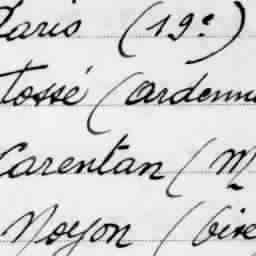 Paris (19e)
Tossé (Ardenn
Carentan (M
Noyon (Oise